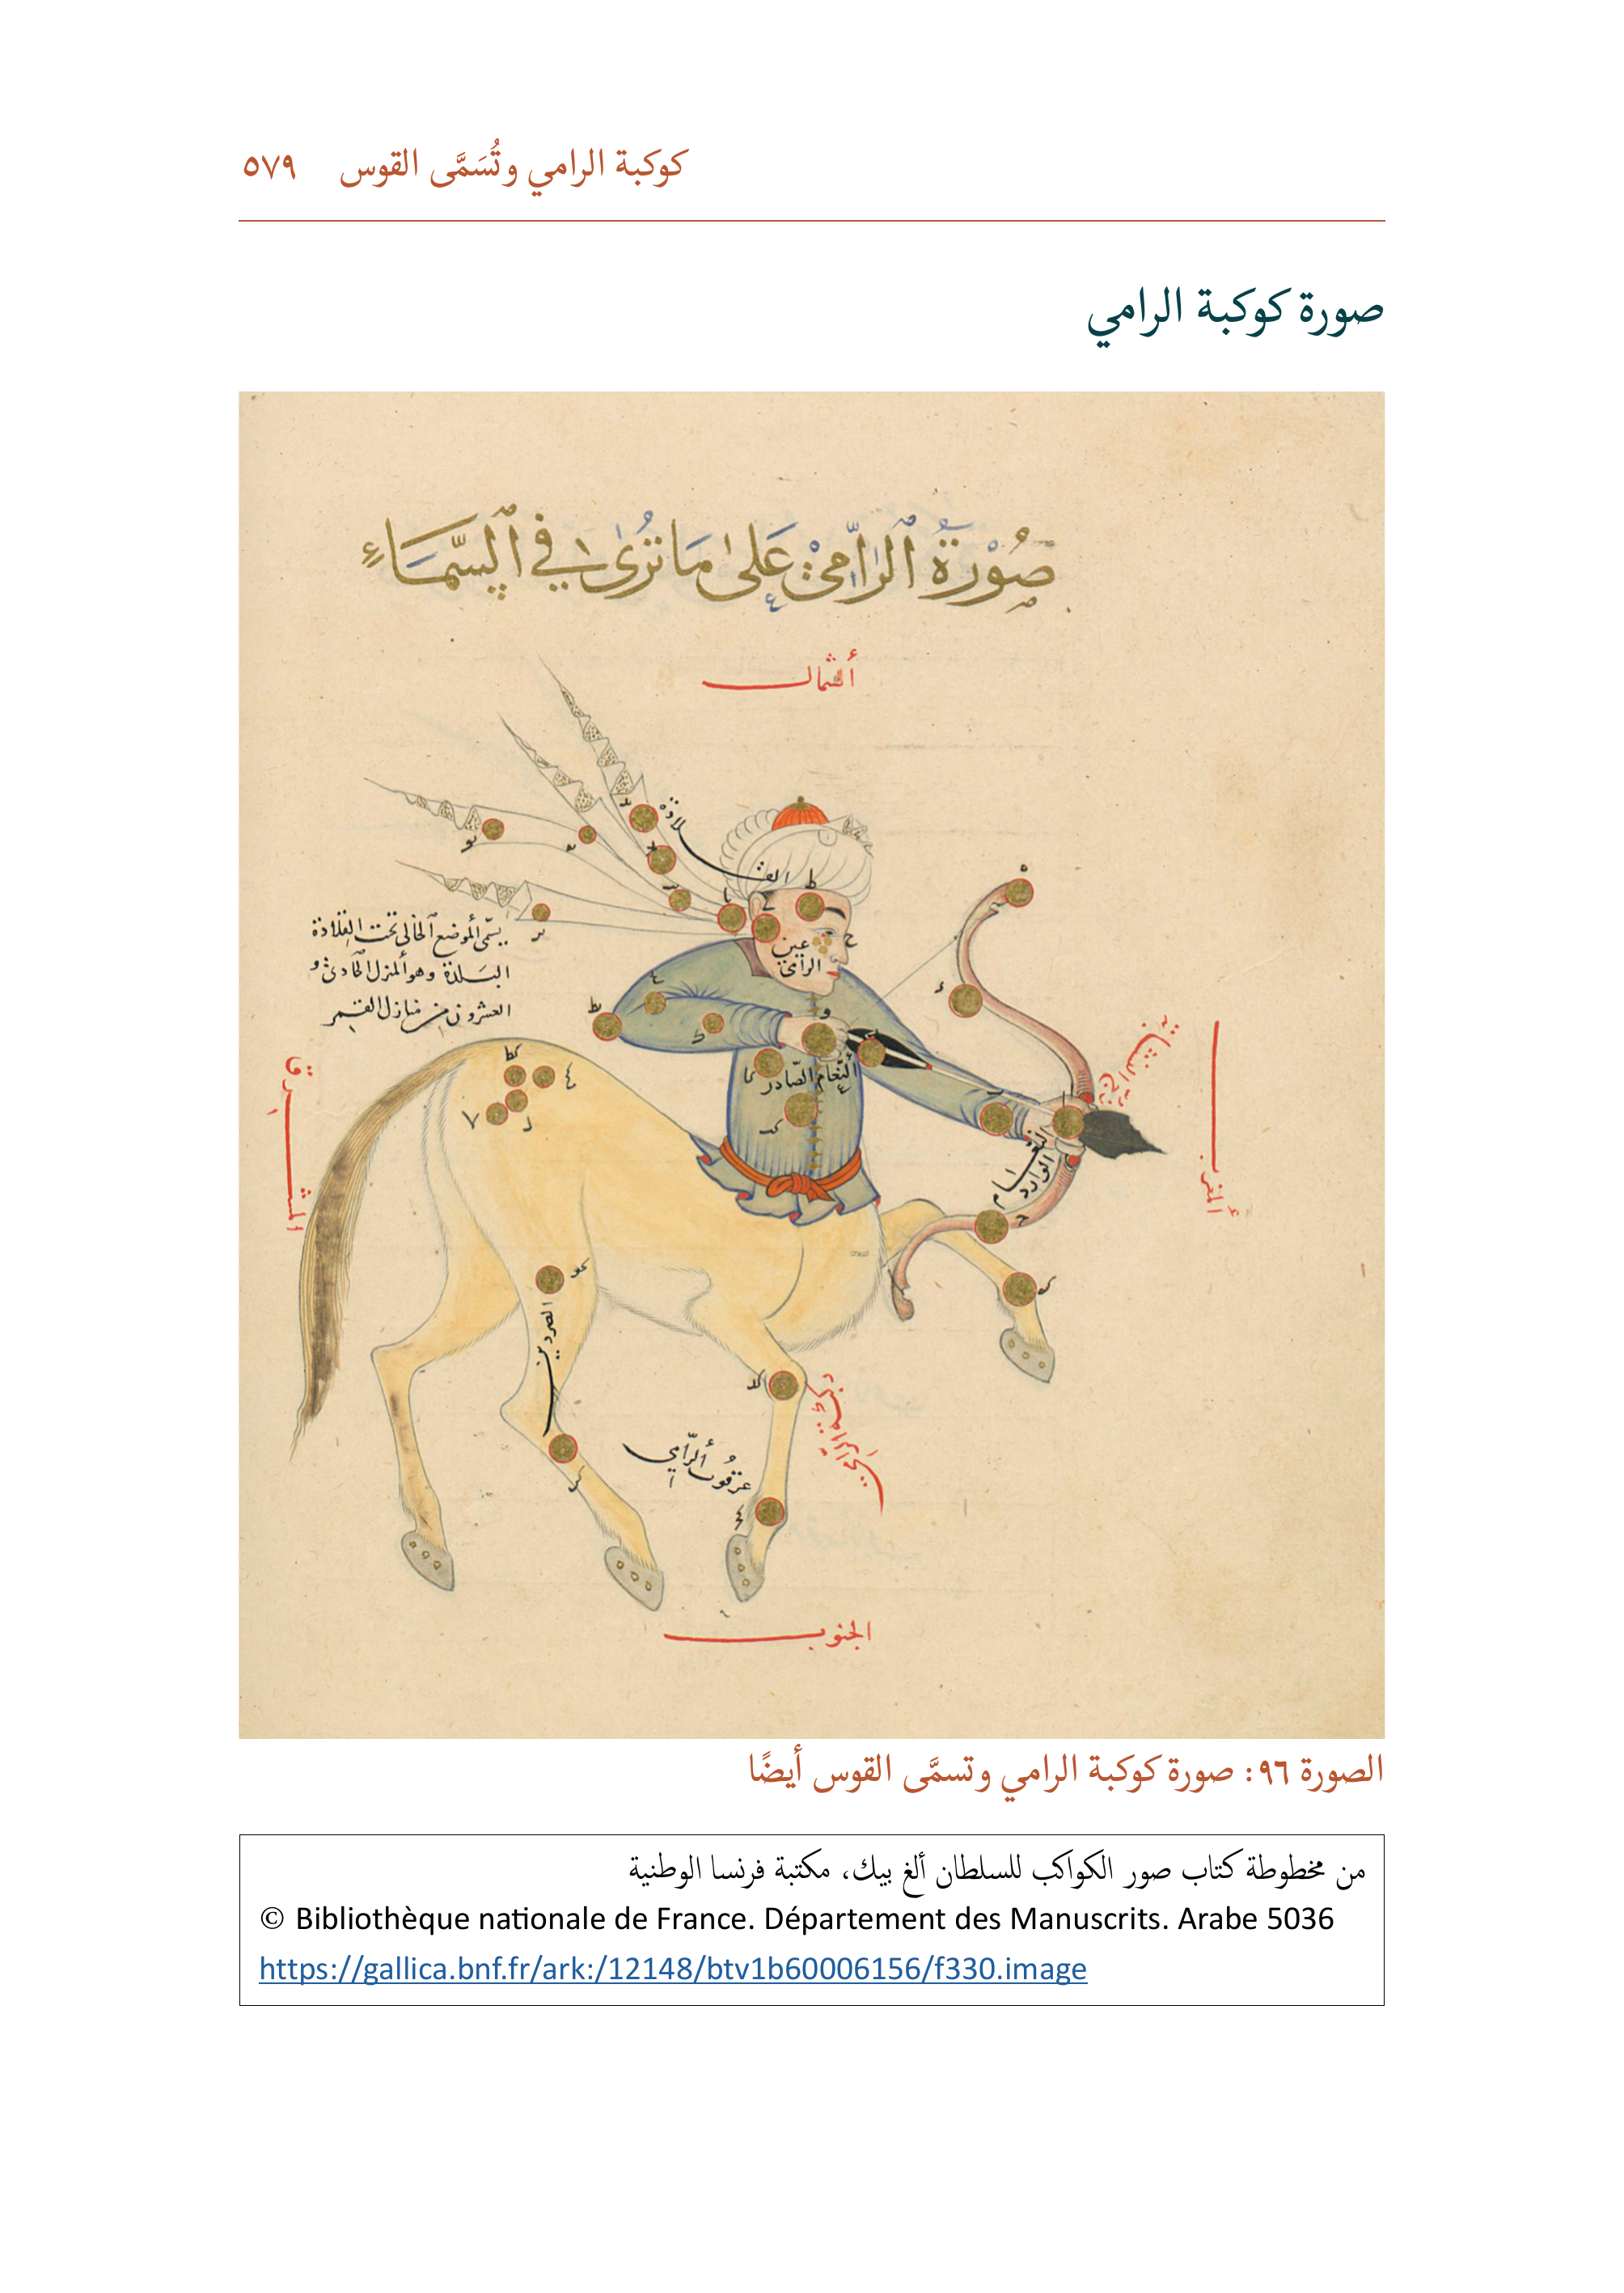 كوكبة الرامي وتُسَمَّى القوس ٥٧٩
صورة كوكبة الرامي
صُوْرَةُ الرَّامِيْ عَلىٰ مَا تُرىٰ فِي السَّمَاءِ
الشمال
القلادة
عين
الرامي
يسمّى الموضع الخالي تحت القلادة
البلدة وهو المنزل الحادي و
العشرون من منازل القمر
النّعام الصّادر
النعام
الوارد
المغرب
المشرق
الصردين
عرقوب الرّامي
الجنوب
الصورة ٩٦: صورة كوكبة الرامي وتسمَّى القوس أيضًا
من مخطوطة كتاب صور الكواكب للسلطان ألغ بيك، مكتبة فرنسا الوطنية
© Bibliothèque nationale de France. Département des Manuscrits. Arabe 5036
https://gallica.bnf.fr/ark:/12148/btv1b60006156/f330.image